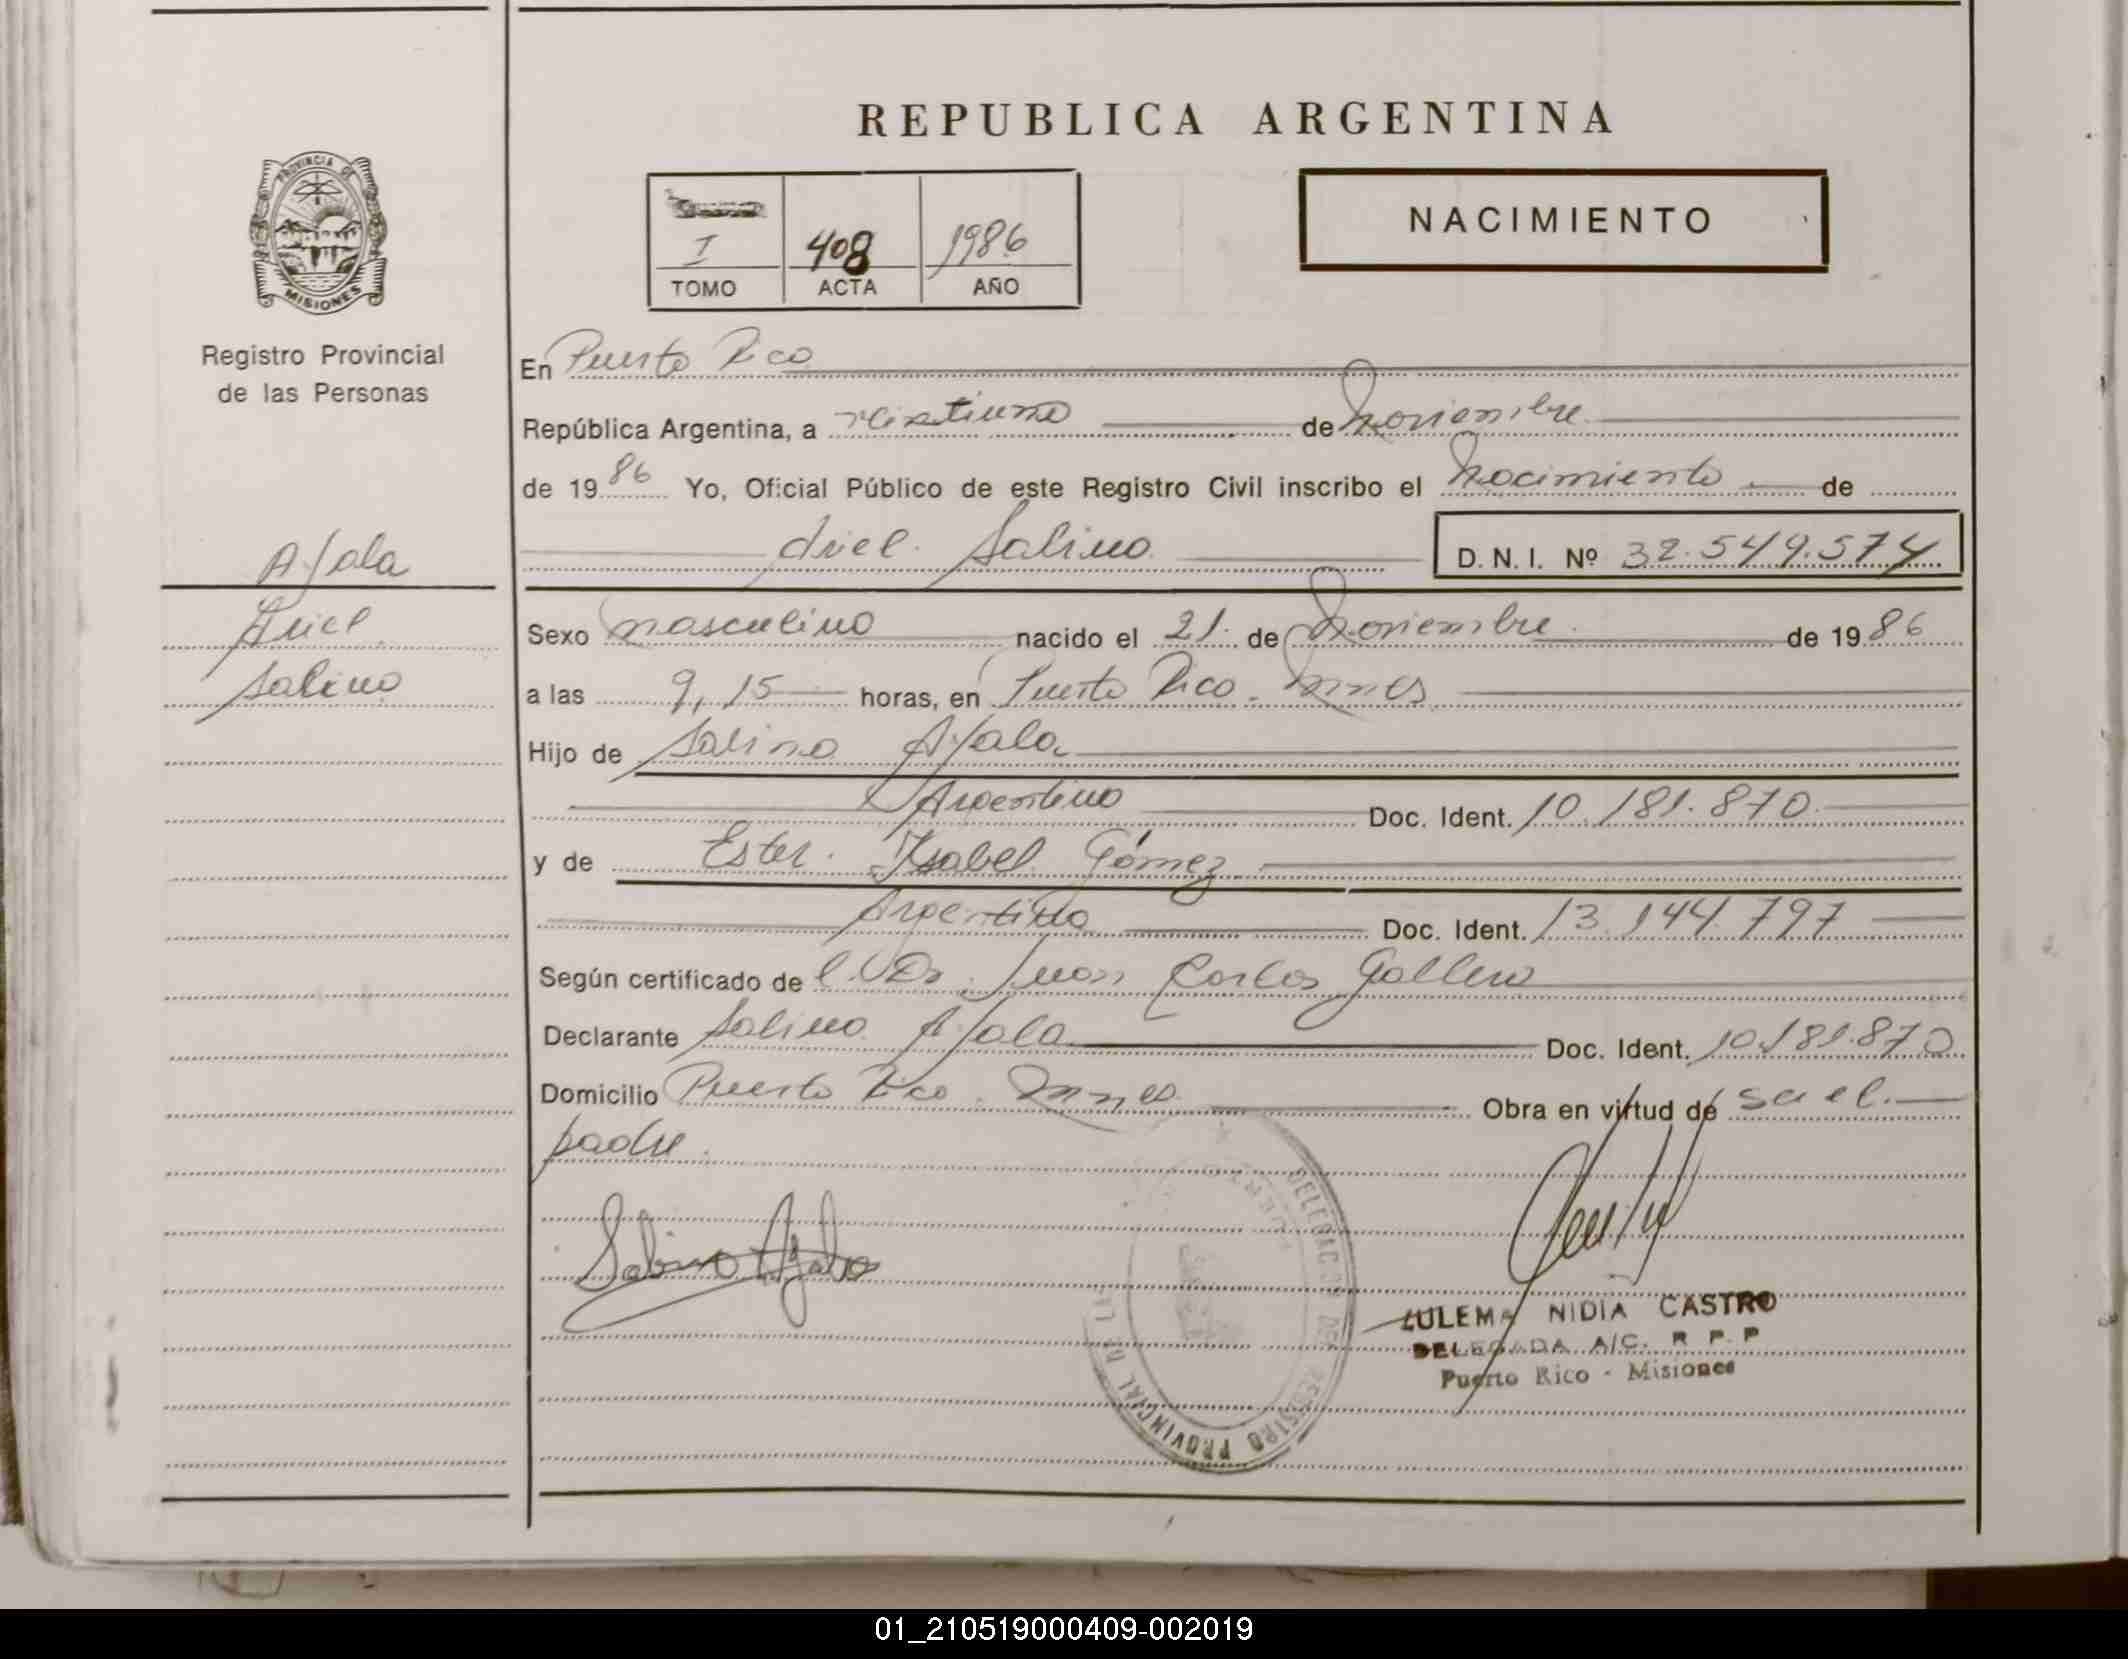 REPUBLICA ARGENTINA
PROVINCIA DE
MISIONES
Registro Provincial
de las Personas
I 408 1986
TOMO ACTA AÑO
NACIMIENTO
En Puerto Rico
República Argentina, a veintiuno de noviembre
de 1986 Yo, Oficial Público de este Registro Civil inscribo el nacimiento de
Ariel Sabino D. N. I. Nº 32.549.574
Ayala
Ariel
Sabino
Sexo masculino nacido el 21 de noviembre de 1986
a las 9,15 horas, en Puerto Rico - Mnes
Hijo de Sabino Ayala
Argentino Doc. Ident. 10.181.870
y de Ester Ysabel Gómez
Argentina Doc. Ident. 13.144.797
Según certificado de Dr. Juan Carlos
Declarante Sabino Ayala Doc. Ident. 10.181.870
Domicilio Puerto Rico - Mnes Obra en virtud de ser el
padre
Sabino Ayala
DELEGACION DEL REGISTRO PROVINCIAL DE LAS
ZULEMA NIDIA CASTRO
DELEGADA A/C. R P. P
Puerto Rico - Misiones
01_210519000409-002019